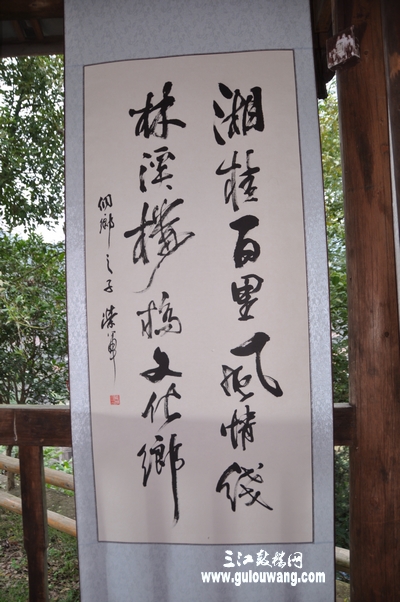 湘桂百里风情线
林溪橋橋文化鄉
侗鄉之子 榮軍
三江鼓楼网
www.gulouwang.com